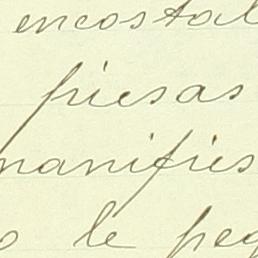 encostal
piesas
manifies
o le peg